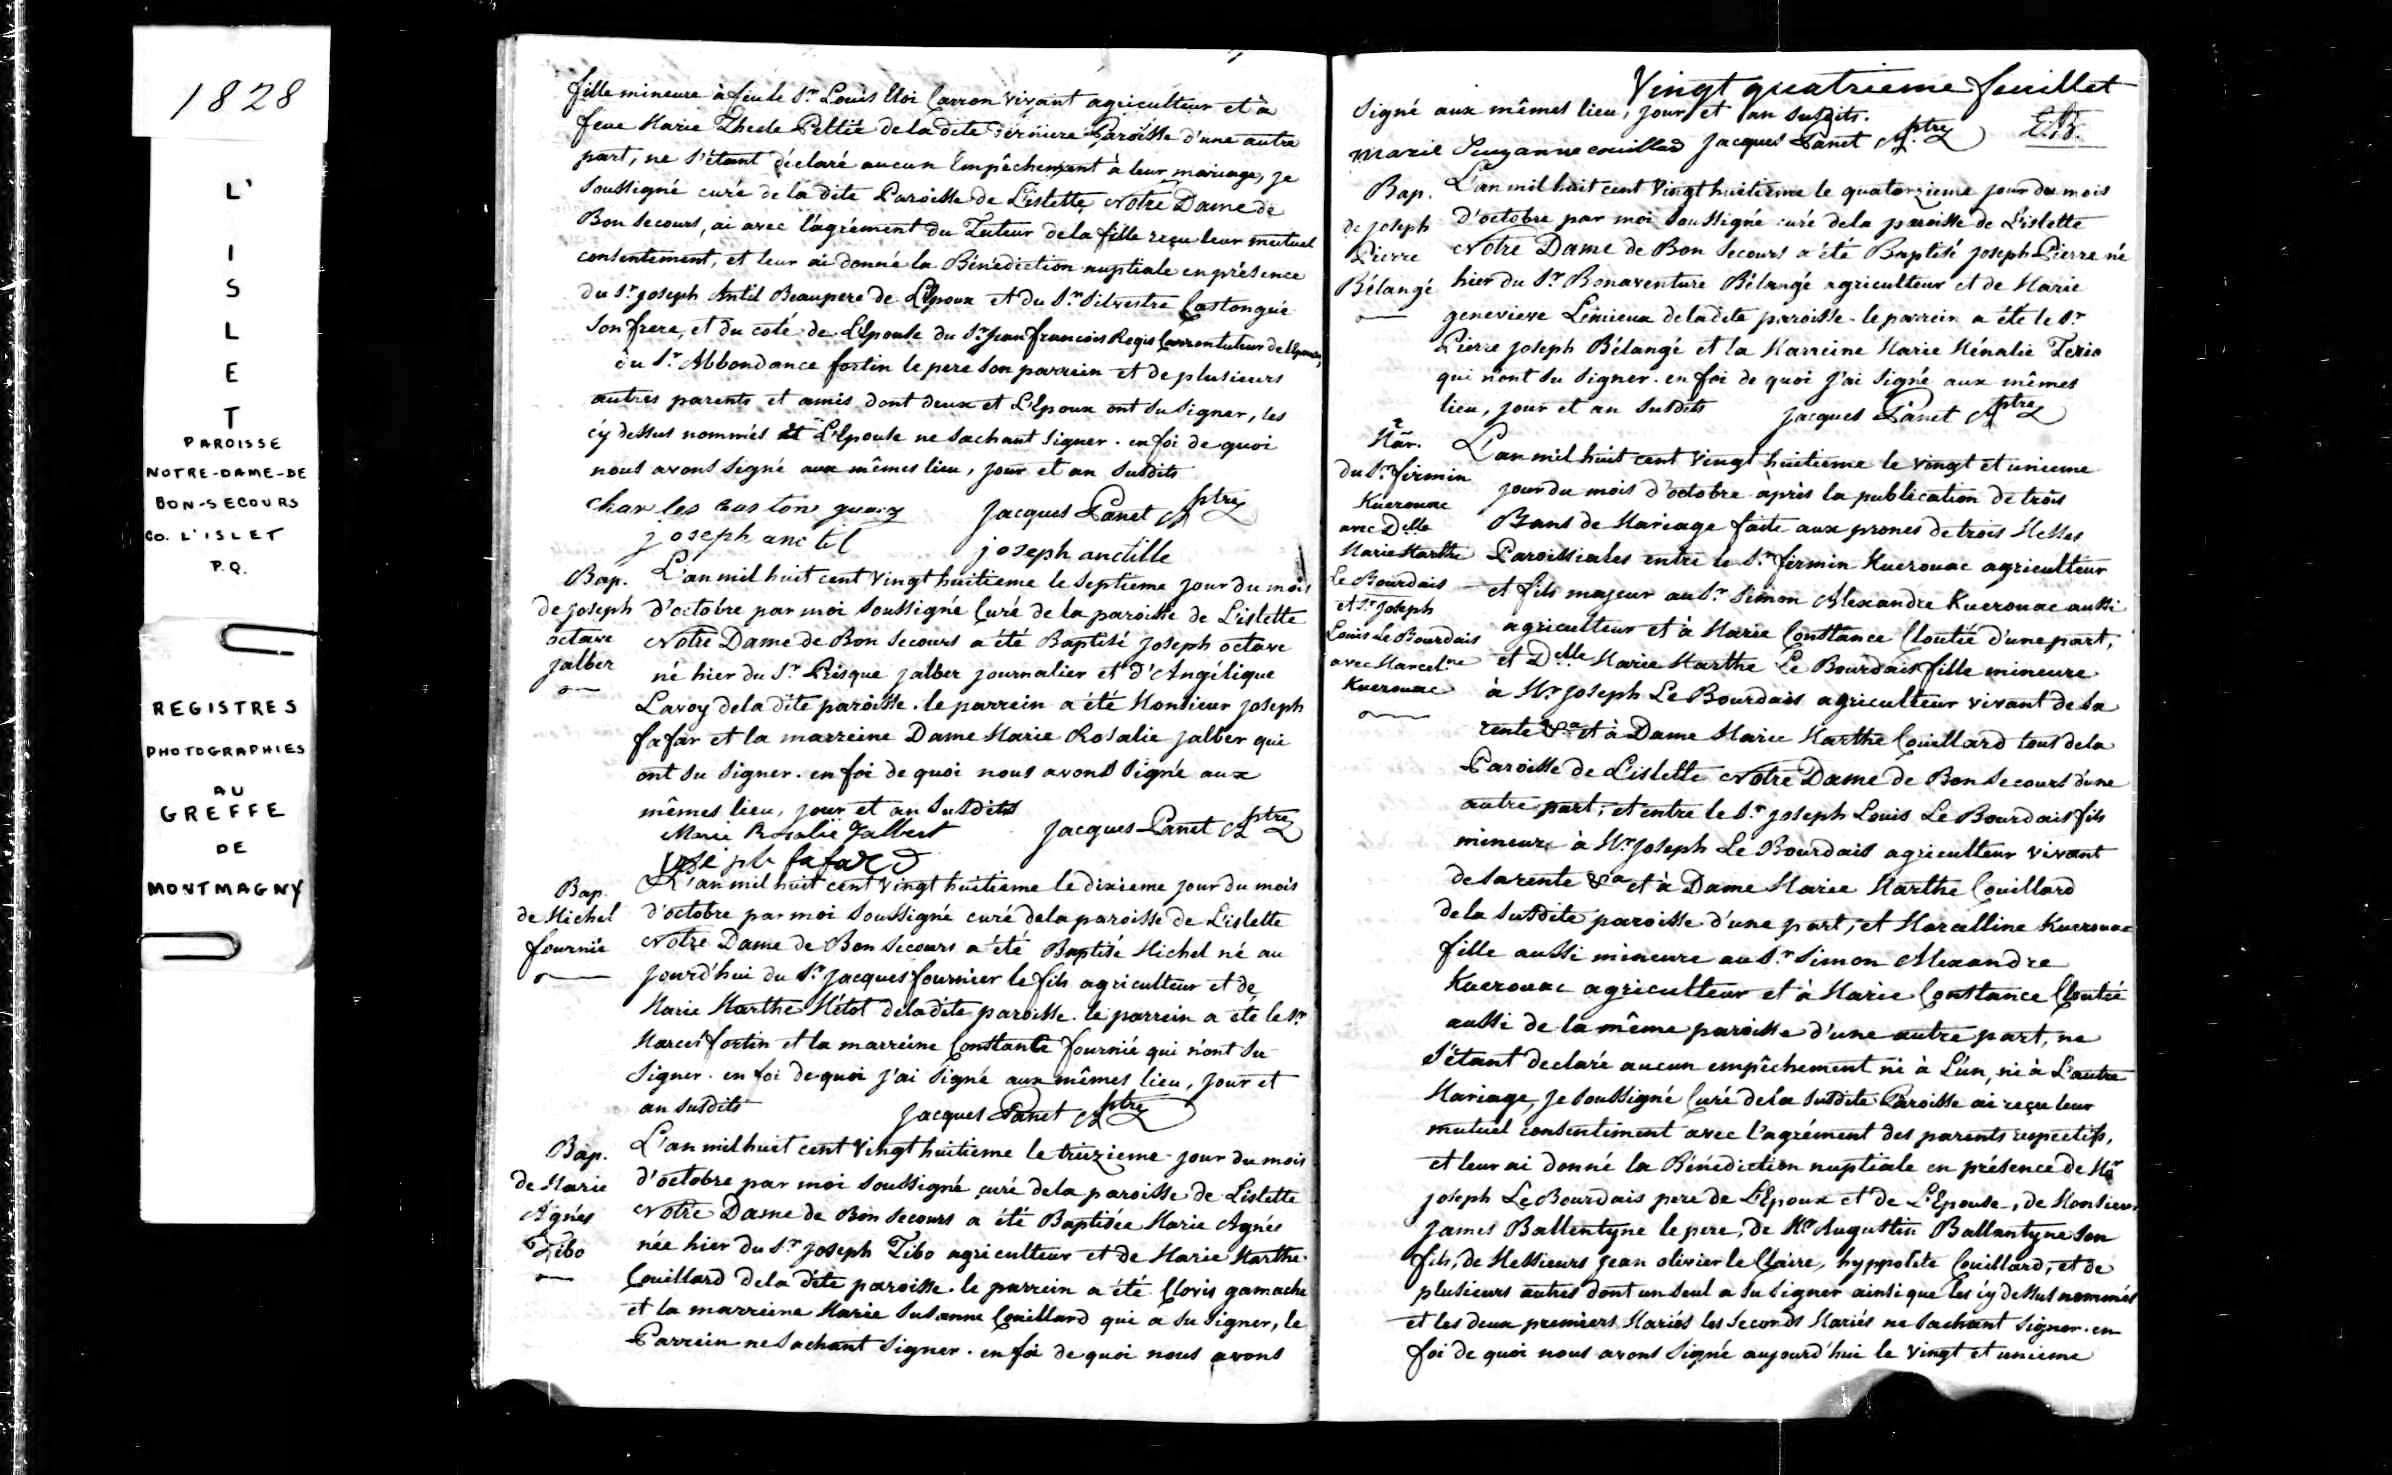 1828
L'
I
S
L
E
T
PAROISSE
NOTRE-DAME-DE
BON-SECOURS
CO. L'ISLET
P.Q.
REGISTRES
PHOTOGRAPHIES
AU
GREFFE
DE
MONTMAGNY
fille mineure à feu le Sr. Louis Eloi Carron vivant agriculteur et à
feue Marie Thecle Peltié de la dite derniere Paroisse d'une autre
part, ne s'étant déclaré aucun Empêchement à leur mariage, je
soussigné curé de la dite Paroisse de L'islette Notre Dame de
Bon secours, ai avec l'agrément du Tuteur de la fille reçu leur mutuel
consentement, et leur ai donné la Bénédiction nuptiale en présence
du Sr. joseph Antil Beaupere de L'Epoux et du Sr. Silvestre Castongué
son frere, et du coté de L'Epouse du Sr. jean françois Regis Carron tuteur de L'Epouse,
du Sr. Abbondance fortin le pere son parrein et de plusieurs
autres parents et amis dont deux et L'Epoux ont su signer, les
cy dessus nommés et L'Epouse ne sachant signer. en foi de quoi
nous avons signé aux mêmes lieu, jour et an susdits
charles caston guaiz jacques Panet Ptre
joseph anctil joseph anctille
Bap.
de joseph
octave
jalber
L'an mil huit cent vingt huitieme le septieme jour du mois
d'octobre par moi soussigné Curé de la paroisse de L'islette
Notre Dame de Bon secours a été Baptisé joseph octave
né hier du Sr. Prisque jalber journalier et d'Angélique
Lavoy de la dite paroisse. le parrein a été Monsieur joseph
fafar et la marreine Dame Marie Rosalie jalber qui
ont su signer. en foi de quoi nous avons signé aux
mêmes lieu, jour et an susdits
Marie Rosalie Jalbert jacques Panet Ptre
joseph fafard
Bap.
de Michel
fournié
L'an mil huit cent vingt huitieme le dixieme jour du mois
d'octobre par moi soussigné curé de la paroisse de L'islette
Notre Dame de Bon secours a été Baptisé Michel né au
jourd'hui du Sr. jacques fournier le fils agriculteur et de
Marie Marthe Métot de la dite paroisse. le parrein a été le Sr.
Marcel fortin et la marreine Constance fournié qui n'ont su
signer. en foi de quoi j'ai signé aux mêmes lieu, jour et
an susdits jacques Panet Ptre
Bap.
de Marie
Agnés
Tibo
L'an mil huit cent vingt huitieme le treizieme jour du mois
d'octobre par moi soussigné curé de la paroisse de L'islette
Notre Dame de Bon secours a été Baptisée Marie Agnés
née hier du Sr. joseph Tibo agriculteur et de Marie Marthe
Couillard de la dite paroisse. le parrein a été Clovis gamache
et la marreine Marie Susanne Couillard qui a su signer, le
Parrein ne sachant signer. en foi de quoi nous avons
Vingt quatrieme feuillet
signé aux mêmes lieu, jour et an susdits.
Marie Suzanne couillard jacques Panet Ptre
Bap.
de joseph
Pierre
Bélangé
L'an mil huit cent vingt huitieme le quatorzieme jour du mois
d'octobre par moi soussigné curé de la paroisse de L'islette
Notre Dame de Bon secours a été Baptisé joseph Pierre né
hier du Sr. Bonaventure Bélangé agriculteur et de Marie
genevieve Lemieux de la dite paroisse. le parrein a été le Sr.
Pierre joseph Bélangé et la Marreine Marie Ménalie Terio
qui n'ont su signer. en foi de quoi j'ai signé aux mêmes
lieu, jour et an susdits jacques Panet Ptre
Mar.
du Sr. firmin
Kuerouac
avec Delle
Marie Marthe
Le Bourdais
et Sr. joseph
Louis Le Bourdais
avec Marcelne
Kuerouac
L'an mil huit cent vingt huitieme le vingt et unieme
jour du mois d'octobre après la publication de trois
Bans de Mariage faite aux prones de trois Messes
Paroissiales entre le Sr. firmin Kuerouac agriculteur
et fils majeur au Sr. Simon Alexandre Kuerouac aussi
agriculteur et à Marie Constance Cloutié d'une part,
et Delle Marie Marthe Le Bourdais fille mineure
à Mr. joseph Le Bourdais agriculteur vivant de sa
rente &a et à Dame Marie Marthe Couillard tous de la
Paroisse de L'islette Notre Dame de Bon secours d'une
autre part; et entre le Sr. joseph Louis Le Bourdais fils
mineur à Mr. joseph Le Bourdais agriculteur vivant
de sa rente &a et à Dame Marie Marthe Couillard
de la susdite paroisse d'une part; et Marcelline Kuerouac
fille aussi mineure au Sr. Simon Alexandre
Kuerouac agriculteur et à Marie Constance Cloutié
aussi de la même paroisse d'une autre part, ne
s'étant declaré aucun empêchement ni à L'un, ni à L'autre
Mariage, je soussigné Curé de la susdite Paroisse ai reçu leur
mutuel consentiment avec l'agrément des parents respectifs,
et leur ai donné la Bénédiction nuptiale en présence de Mr
joseph Le Bourdais pere de L'Epoux et de L'Epouse, de Monsieur
James Ballentyne le pere, de Mr Augustin Ballantyne son
fils, de Messieurs jean olivier le Claire, hyppolite Couillard, et de
plusieurs autres dont un seul a su signer ainsi que les cy dessus nommés
et les deux premiers Mariés les seconds Mariés ne sachant signer. en
foi de quoi nous avons signé aujourd'hui le vingt et unieme